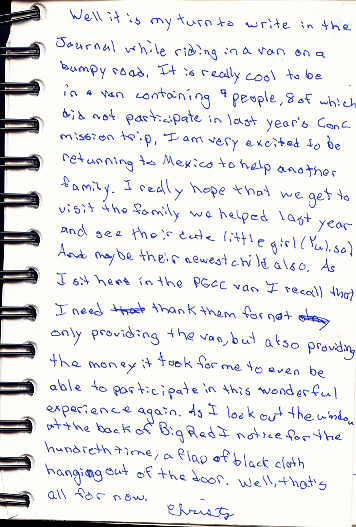 Well it is my turn to write in the
Journal while riding in a van on a
bumpy road. It is really cool to be
in a van containing 9 people, 8 of which
did not participate in last year's Conc
mission trip, I am very excited to be
returning to Mexico to help another
family. I really hope that we get to
visit the family we helped last year
and see their cute little girl (Yulisa)
And maybe their newest child also. As
I sit here in the PGCC van I recall that
I need that thank them for not
only providing the van, but also providing
the money it took for me to even be
able to participate in this wonderful
experience again. As I look out the window
at the back of Big Red I notice for the
hundreth time, a flap of black cloth
hanging out of the door. Well, that's
all for now.
Christy